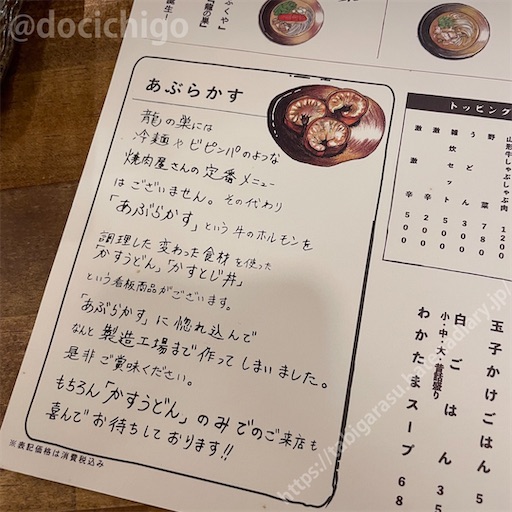 @docichigo
誕生
『龍の巣』
ふくや』
あぶらかす
龍の巣には
冷麺やビビンバのような
焼肉屋さんの定番メニュー
はございません。その代わり
「あぶらかす」という牛のホルモンを
調理した変わった食材を使った
「かすうどん」「かすとじ丼」
という看板商品がございます。
「あぶらかす」に惚れ込んで
なんと製造工場まで作ってしまいました。
是非ご賞味ください。
もちろん「かすうどん」のみでのご来店も
喜んでお待ちしております!!
※表記価格は消費税込み
トッピング
山形牛しゃぶしゃぶ肉 1200
野菜 780
うどん 300
雑炊セット 500
激辛 200
激激辛 500
玉子かけごはん 5
白ごはん 35
小・中・大・昔話盛り
わかたまスープ 68
https://tabigarasu.hatenadiary.jp/